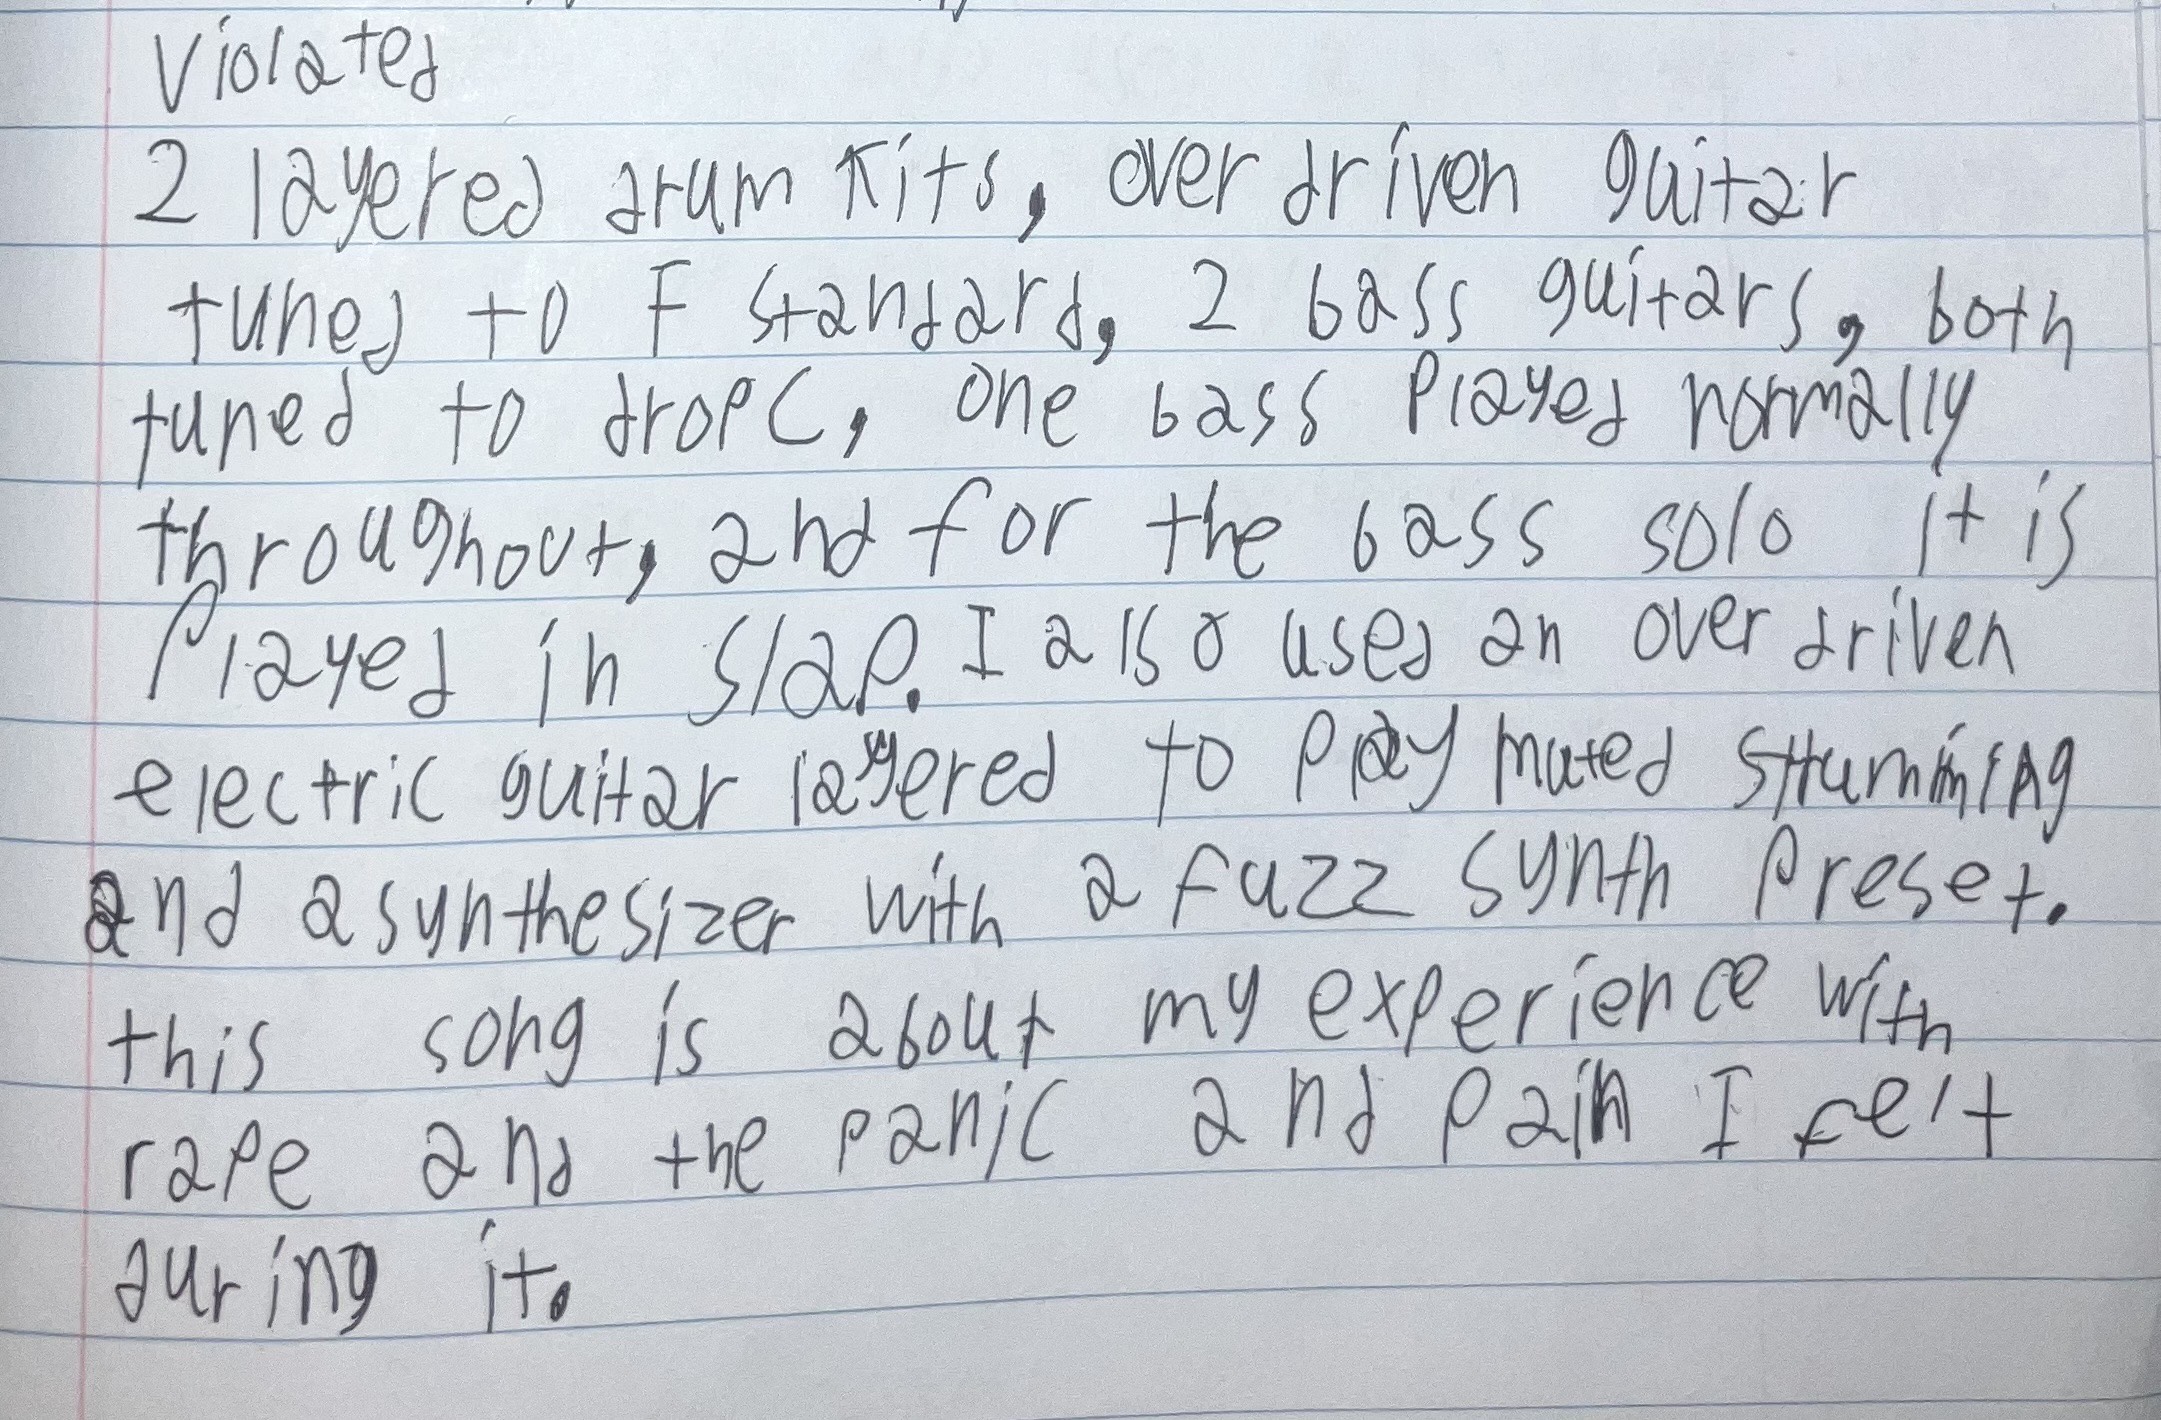 Violated
2 layered drum kits, over driven guitar
tuned to F standard, 2 bass guitars, both
tuned to drop C, one bass played normally
throughout, and for the bass solo it is
played in slap. I also used an over driven
electric guitar layered to play muted strumming
and a synthesizer with a fuzz synth preset.
this song is about my experience with
rape and the panic and pain I felt
during it.